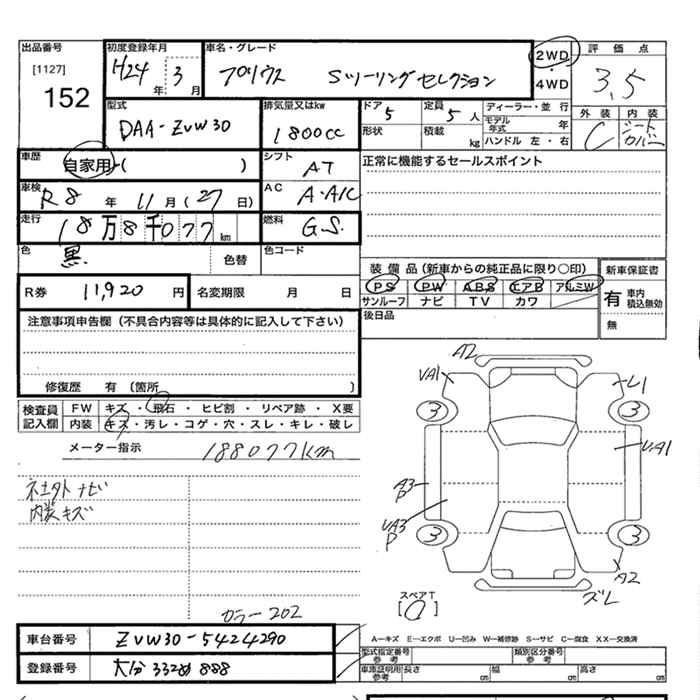 出品番号
[1127]
152
初度登録年月
H24 年 3 月
車名・グレード
プリウス Sツーリングセレクション
2WD
・
4WD
評価点
3.5
型式
DAA-ZVW30
排気量又はkw
1800cc
ドア 5
定員 5 人
形状
積載 kg
ディーラー・並行
モデル年式 年
ハンドル 左・右
外装 内装
C シートカバー
車歴
自家用・( )
シフト
AT
正常に機能するセールスポイント
車検
R8 年 11 月 (27 日)
AC
A・A/C
走行
18万8千077 km
燃料
G.S.
色
黒
色替
色コード
R券 11,920 円
名変期限 月 日
装備品 (新車からの純正品に限り○印)
PS PW ABS エアB アルミW
サンルーフ ナビ TV カワ
後日品
新車保証書
有 車内積込無効
無
注意事項申告欄 (不具合内容等は具体的に記入して下さい)
修復歴 有 (箇所 )
検査員記入欄
FW キズ・飛石・ヒビ割・リペア跡・X要
内装 キズ・汚レ・コゲ・穴・スレ・キレ・破レ
メーター指示 188077km
ナビ
内装キズ
A2
UA1
U1
3 3
UA1
A3
P
UA3
P
3 3
A2
ズレ
スペアT
[ ]
カラー202
車台番号 ZVW30-5424290
登録番号 大分 332 888
A－キズ E－エクボ U－凹み W－補修跡 S－サビ C－腐食 XX－交換済
型式指定番号 参考
類別区分番号 参考
車庫証明用 参考 長さ cm 幅 cm 高さ cm